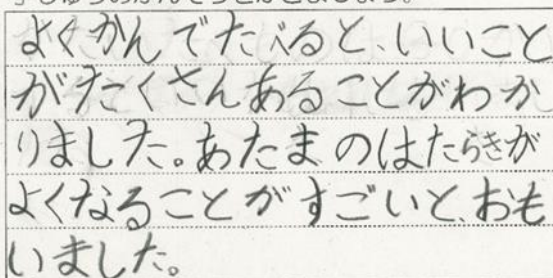 よくかんでたべると、いいこと
がたくさんあることがわか
りました。あたまのはたらきが
よくなることがすごいと、おも
いました。